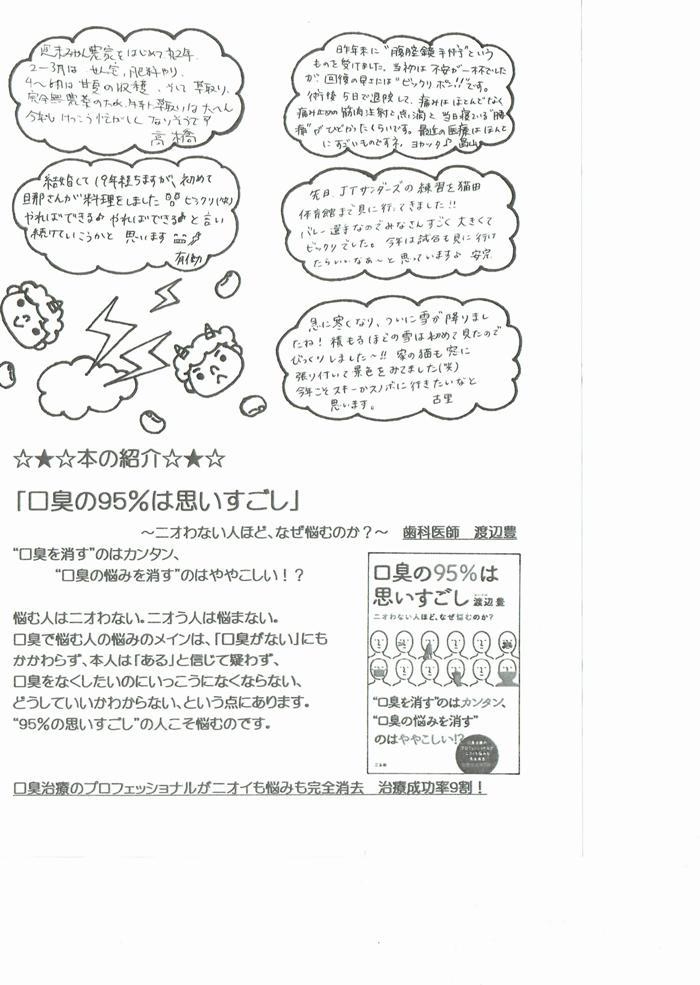 週末みかん農家をはじめて丸2年。
2〜3月は せん定、肥料やり、
4〜5月は 甘夏の収穫、そして 草取り、
完全無農薬のため、草取りは大へん
今年も けっこう忙がしく なりそうです
高橋
昨年末に"腹腔鏡手術"という
ものを受けました。当初は 不安が一杯でした
が、回復の早さには"ビックリ ポン!!"です。
術後 5日で退院して、痛みは ほとんどなく
痛み止めの 筋肉注射と点滴と 当日寝ている"腰
痛"がひどかったくらいです。最近の医療は ほんと
に すごいものですネ。ヨカッタ♪ 畠山
結婚して 19年経ちますが、初めて
旦那さんが料理をしました ビックリ(笑)
やればできる♪ やればできる♪ と言い
続けていこうかと 思います
有働
先日、JTサンダーズの 練習を猫田
体育館まで 見に行ってきました!!
バレー選手なのでみなさん すごく 大きくて
ビックリでした。今年は試合も見に行け
たらいいなぁ〜と 思っています♪ 安完
急に寒くなり、ついに雪が降りまし
たね! 積もるほどの雪は初めて見たので
びっくりしました〜!! 家の猫も 窓に
張り付いて景色をみてました(笑)
今年こそスキーかスノボに行きたいなと
思います。 古里
☆★☆本の紹介☆★☆
「口臭の95%は思いすごし」
〜ニオわない人ほど、なぜ悩むのか?〜 歯科医師 渡辺豊
"口臭を消す"のはカンタン、
"口臭の悩みを消す"のはややこしい!?
口臭の95%は
思いすごし 渡辺 豊
ニオわない人ほど、なぜ悩むのか?
悩む人はニオわない。ニオう人は悩まない。
口臭で悩む人の悩みのメインは、「口臭がない」にも
かかわらず、本人は「ある」と信じて疑わず、
口臭をなくしたいのにいっこうになくならない、
どうしていいかわからない、という点にあります。
"95%の思いすごし"の人こそ悩むのです。
"口臭を消す"のはカンタン、
"口臭の悩みを消す"
のはややこしい!?
口臭治療のプロフェッショナルがニオイも悩みも完全消去 治療成功率9割!